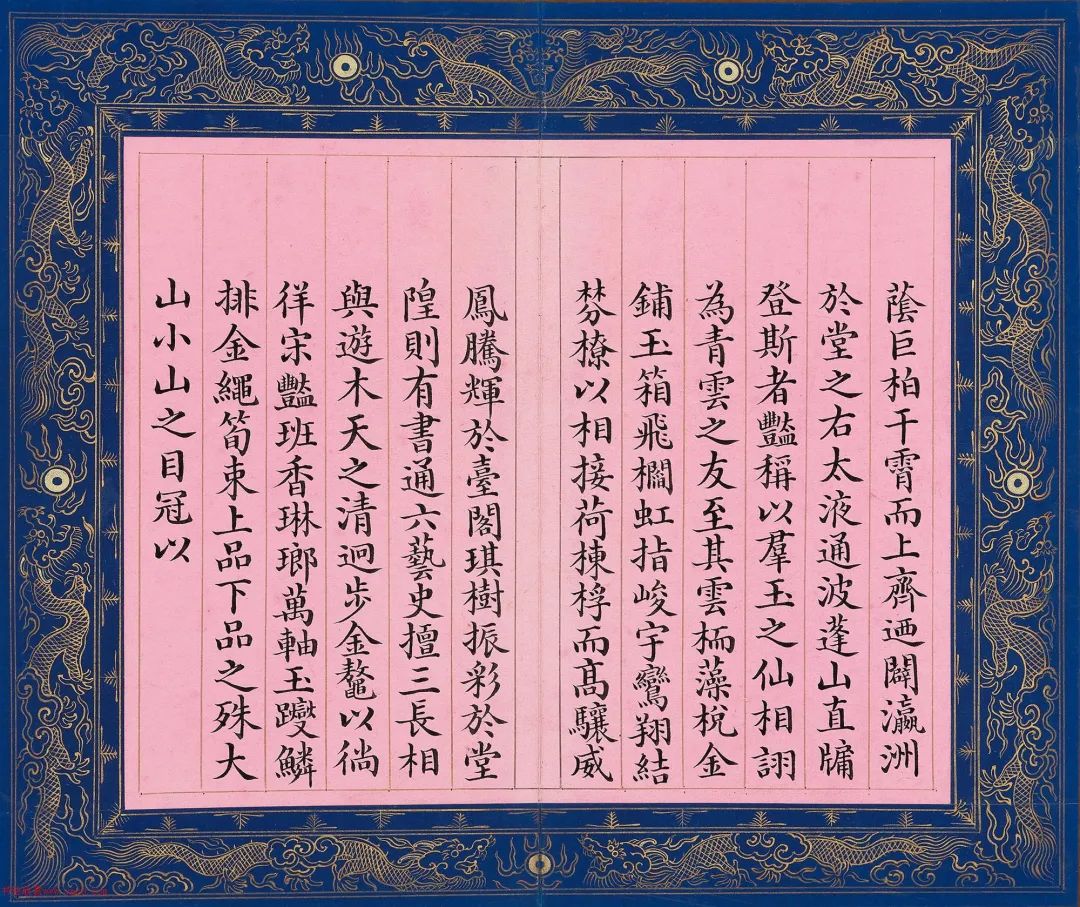 蔭巨柏干霄而上齊迺闢瀛洲
於堂之右太液通波蓬山直牖
登斯者豔稱以羣玉之仙相詡
為青雲之友至其雲栭藻梲金
鋪玉箱飛櫩虹指峻宇鸞翔結
棼橑以相接荷棟桴而高驤威
鳳騰輝於臺閣琪樹振彩於堂
隍則有書通六藝史擅三長相
與遊木天之清迥步金鼇以徜
徉宋豔班香琳瑯萬軸玉躞鱗
排金繩筍束上品下品之殊大
山小山之目冠以